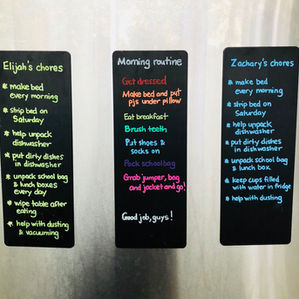 Elijah's chores
* make bed
every morning
* strip bed on
Saturday
* help unpack
dishwasher
* put dirty dishes
in dishwasher
* unpack school bag
& lunch boxes
every day
* wipe table after
eating
* help with dusting
& vacuuming
Morning routine
Get dressed
Make bed and put
pjs under pillow
Eat breakfast
Brush teeth
Put shoes &
socks on
Pack school bag
Grab jumper, bag
and jacket and go!
Good job, guys!
Zachary's chores
* make bed
every morning
* strip bed on
Saturday
* help unpack
dishwasher
* put dirty dishes
in dishwasher
* unpack school bag
& lunch box
* keep cups filled
with water in fridge
* help with dusting